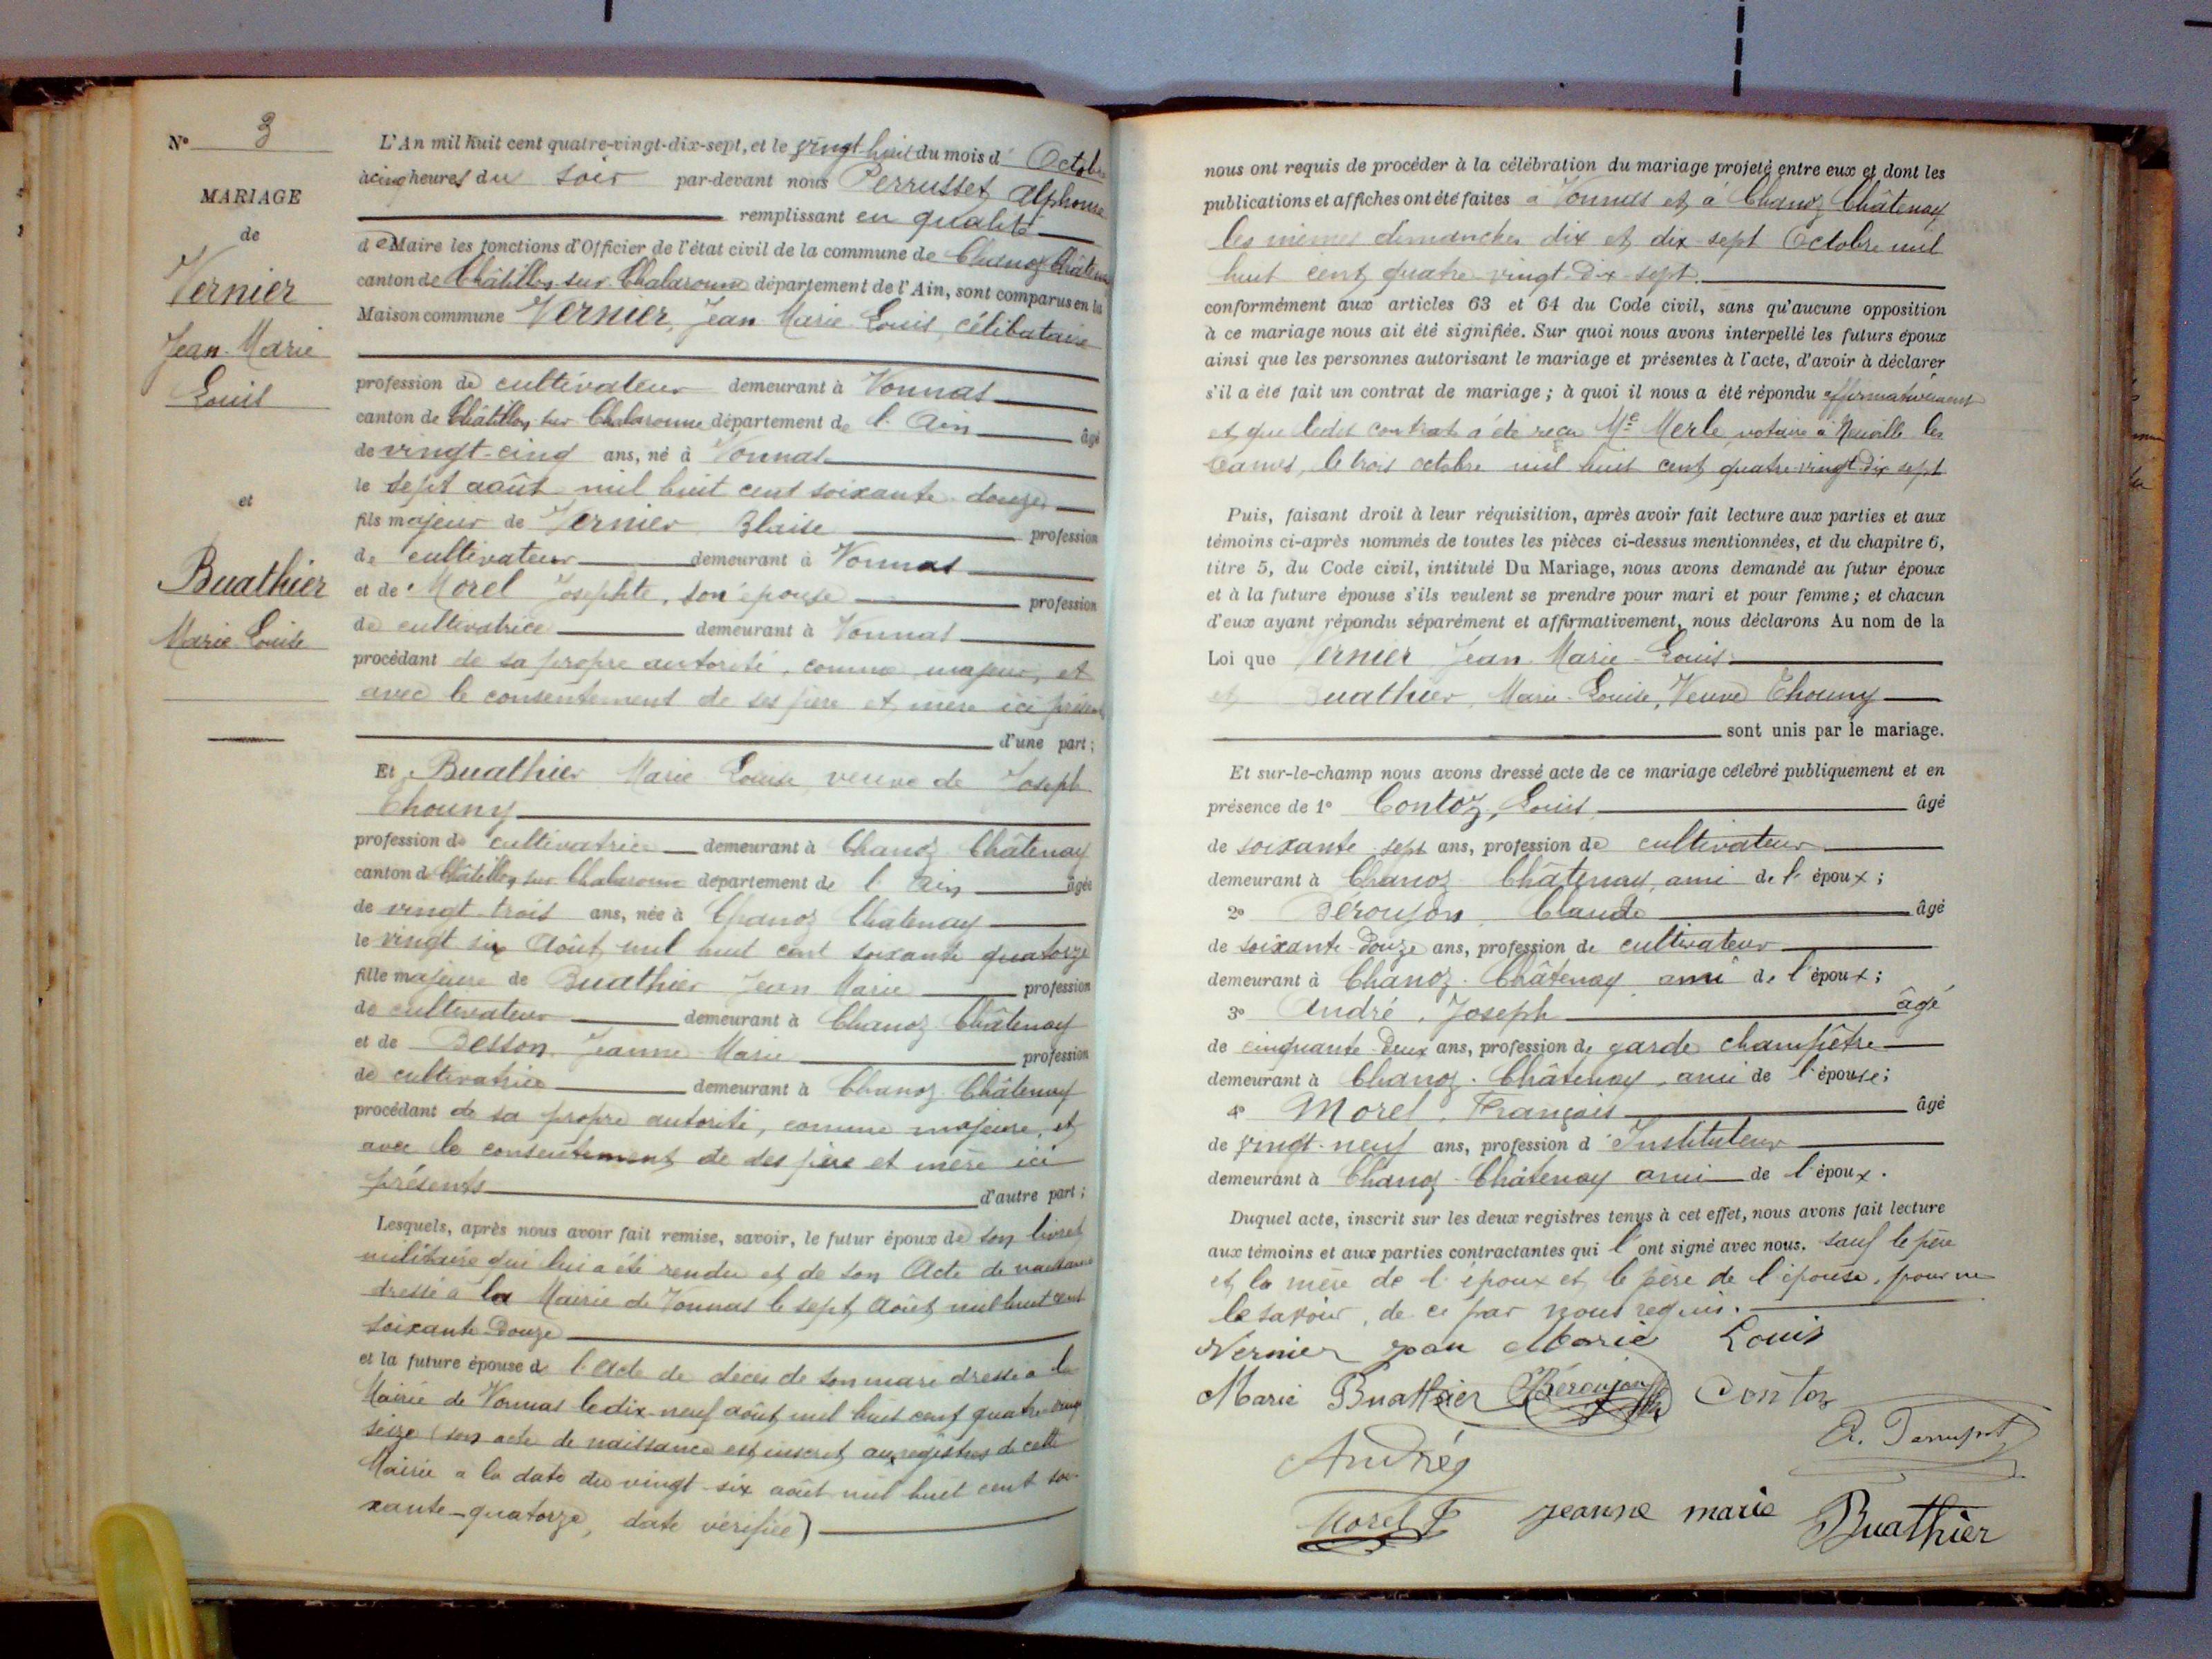 N° 3
MARIAGE
de
Vernier
Jean-Marie
Louis
et
Buathier
Marie Louise
L'An mil huit cent quatre-vingt-dix-sept, et le vingt huit du mois d' Octobre
à cinq heures du soir par-devant nous Perrusset, Alphonse
remplissant en qualité
de Maire les fonctions d'Officier de l'état civil de la commune de Chanoz Châtenay
canton de Châtillon-sur-Chalaronne département de l'Ain, sont comparus en la
Maison commune Vernier, Jean Marie Louis, célibataire
profession de cultivateur demeurant à Vonnas
canton de Châtillon sur Chalaronne département de l'Ain âgé
de vingt-cinq ans, né à Vonnas
le sept août mil huit cent soixante douze
fils majeur de Vernier Blaise profession
de cultivateur demeurant à Vonnas
et de Morel Josephte, son épouse profession
de cultivatrice demeurant à Vonnas
procédant de sa propre autorité, comme majeur, et
avec le consentement de ses père et mère ici présents
d'une part ;
Et Buathier Marie Louise veuve de Joseph
Thouny
profession de cultivatrice demeurant à Chanoz Châtenay
canton de Châtillon sur Chalaronne département de l'Ain âgée
de vingt-trois ans, née à Chanoz Châtenay
le vingt six Août mil huit cent soixante quatorze
fille majeure de Buathier Jean Marie profession
de cultivateur demeurant à Chanoz Châtenay
et de Besson Jeanne Marie profession
de cultivatrice demeurant à Chanoz Châtenay
procédant de sa propre autorité, comme majeure, et
avec le consentement de ses père et mère ici
présents d'autre part ;
Lesquels, après nous avoir fait remise, savoir, le futur époux de son livret
militaire qui lui a été rendu et de son Acte de naissance
dressé à la Mairie de Vonnas le sept Août mil huit cent
soixante Douze
et la future épouse de l'Acte de décès de son mari dressé à la
Mairie de Vonnas le dix-neuf août mil huit cent quatre-vingt
seize (son acte de naissance est inscrit aux registres de cette
Mairie à la date du vingt-six août mil huit cent soi-
xante-quatorze, date vérifiée)
nous ont requis de procéder à la célébration du mariage projeté entre eux et dont les
publications et affiches ont été faites à Vonnas et à Chanoz Châtenay
les mêmes dimanches dix et dix-sept Octobre mil
huit cent quatre-vingt-dix-sept.
conformément aux articles 63 et 64 du Code civil, sans qu'aucune opposition
à ce mariage nous ait été signifiée. Sur quoi nous avons interpellé les futurs époux
ainsi que les personnes autorisant le mariage et présentes à l'acte, d'avoir à déclarer
s'il a été fait un contrat de mariage ; à quoi il nous a été répondu affirmativement
et que ledit contrat a été reçu Me Merle notaire à Neuville les
Dames, le trois octobre mil huit cent quatre-vingt-dix sept
Puis, faisant droit à leur réquisition, après avoir fait lecture aux parties et aux
témoins ci-après nommés de toutes les pièces ci-dessus mentionnées, et du chapitre 6,
titre 5, du Code civil, intitulé Du Mariage, nous avons demandé au futur époux
et à la future épouse s'ils veulent se prendre pour mari et pour femme ; et chacun
d'eux ayant répondu séparément et affirmativement, nous déclarons Au nom de la
Loi que Vernier Jean-Marie-Louis
et Buathier, Marie-Louise, Veuve Thouny
sont unis par le mariage.
Et sur-le-champ nous avons dressé acte de ce mariage célébré publiquement et en
présence de 1° Contoz, Louis âgé
de soixante sept ans, profession de cultivateur
demeurant à Chanoz Châtenay, ami de l'époux ;
2° Béroujon Claude âgé
de soixante-Douze ans, profession de cultivateur
demeurant à Chanoz-Châtenay ami de l'époux ;
3° André, Joseph âgé
de cinquante-Deux ans, profession de garde champêtre
demeurant à Chanoz-Châtenay, ami de l'épouse ;
4° Morel, François âgé
de vingt-neuf ans, profession d'Instituteur
demeurant à Chanoz-Châtenay ami de l'époux.
Duquel acte, inscrit sur les deux registres tenus à cet effet, nous avons fait lecture
aux témoins et aux parties contractantes qui l'ont signé avec nous. sauf le père
et la mère de l'époux et le père de l'épouse, pour ne
le savoir, de ce par nous requis.
Vernier jean Marie Louis
Marie Buathier Béroujon Contoz
André
Morel F jeanne marie Buathier